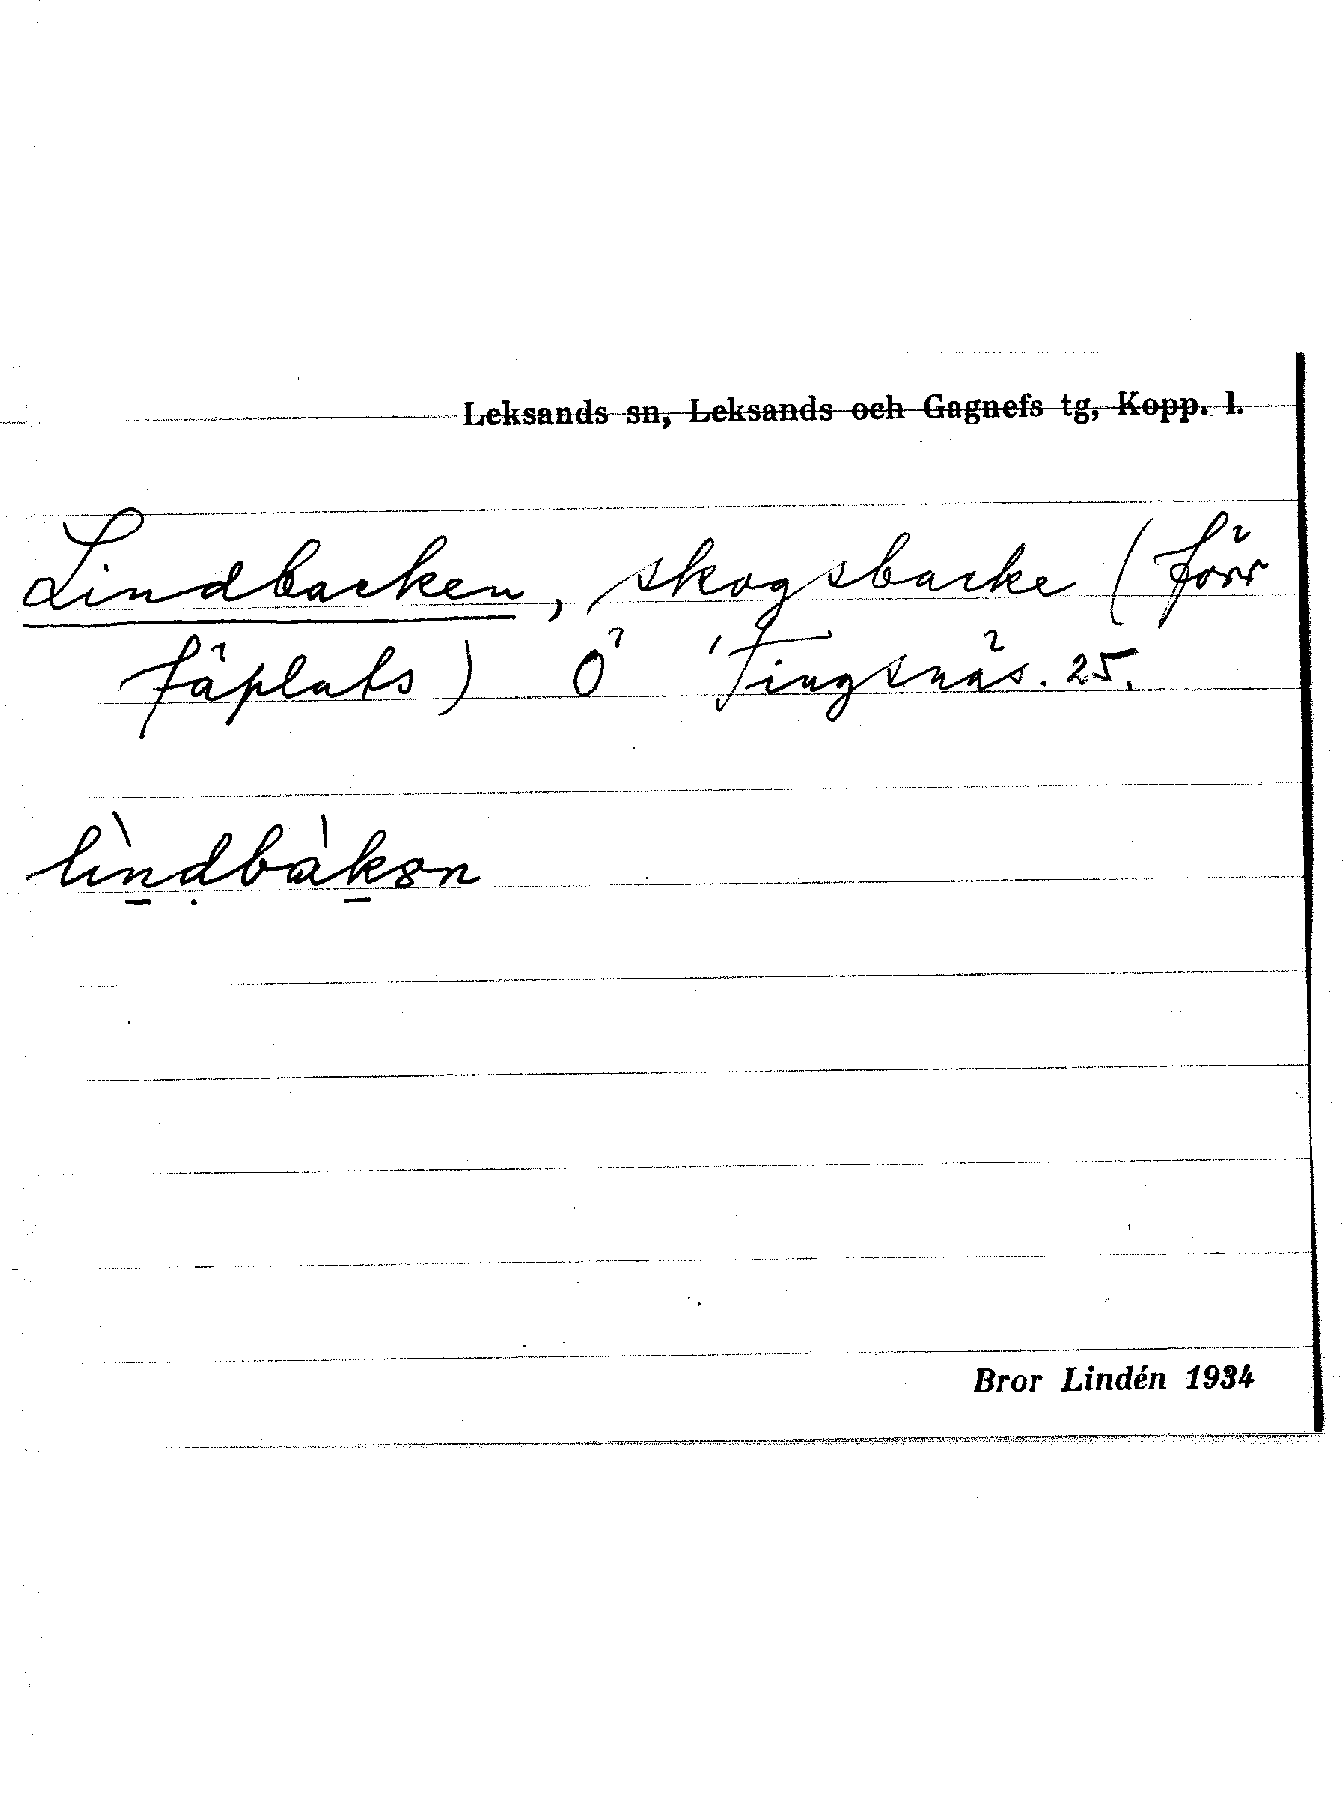 Leksands sn, Leksands och Gagnefs tg, Kopp. l.
Lindbacken, skogsbacke (förr
fäplats) Ö Tingsnäs. 25.
lìn̠ḍbàk̠ən
Bror Lindén 1934